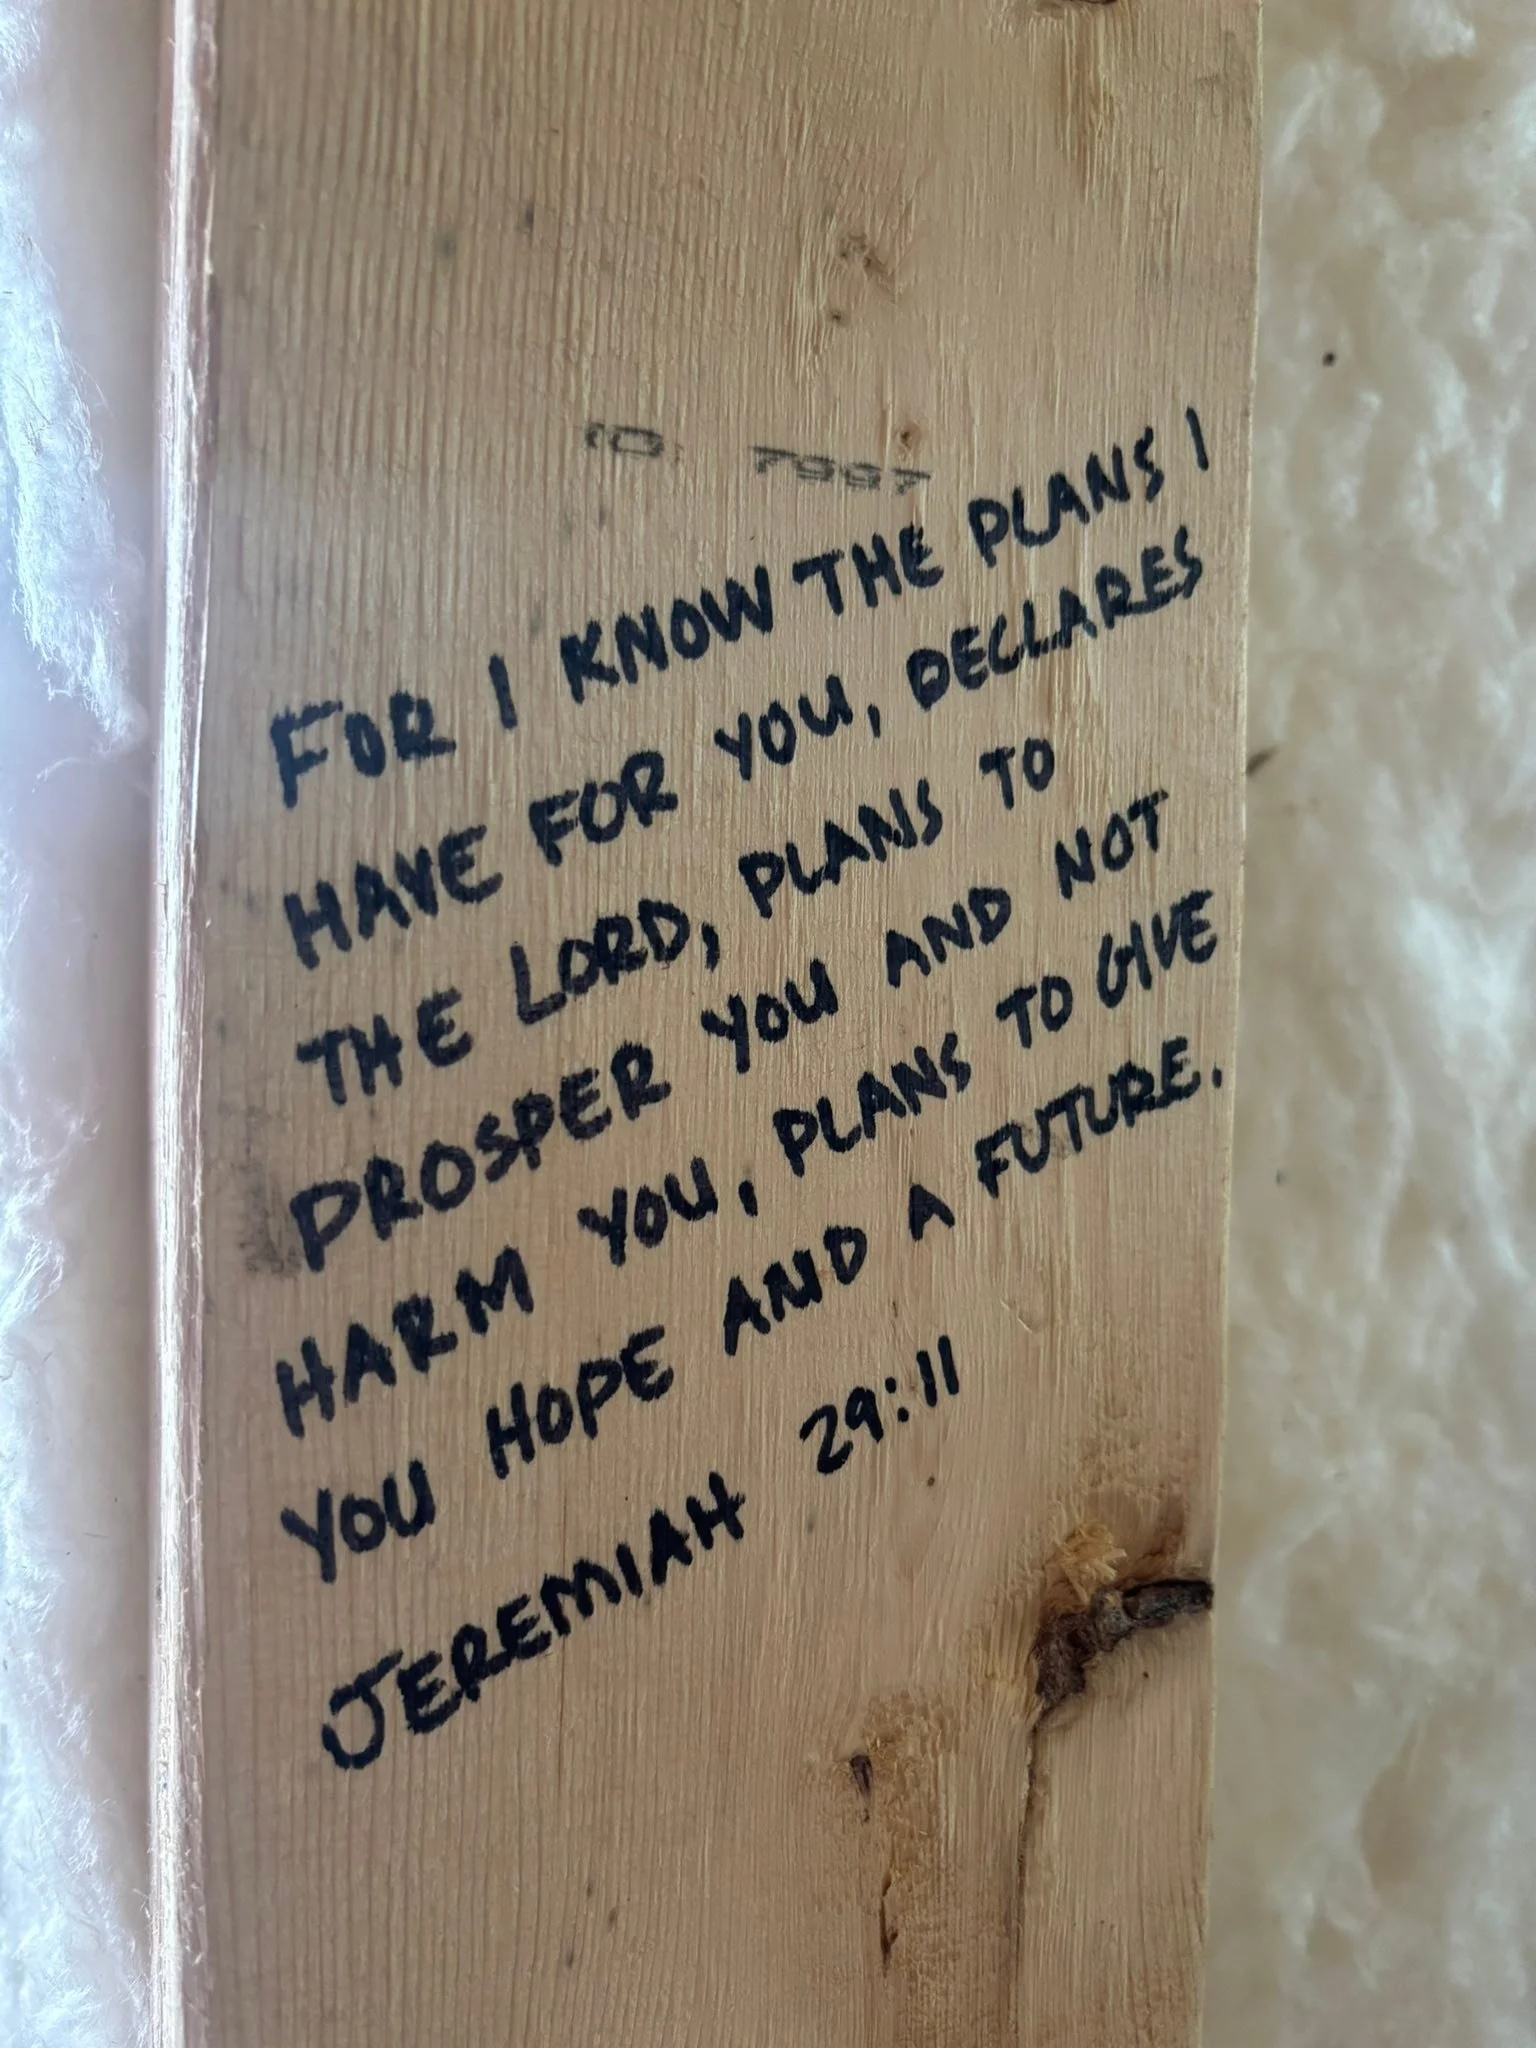 ID: 7997
FOR I KNOW THE PLANS I
HAVE FOR YOU, DECLARES
THE LORD, PLANS TO
PROSPER YOU AND NOT
HARM YOU, PLANS TO GIVE
YOU HOPE AND A FUTURE.
JEREMIAH 29:11